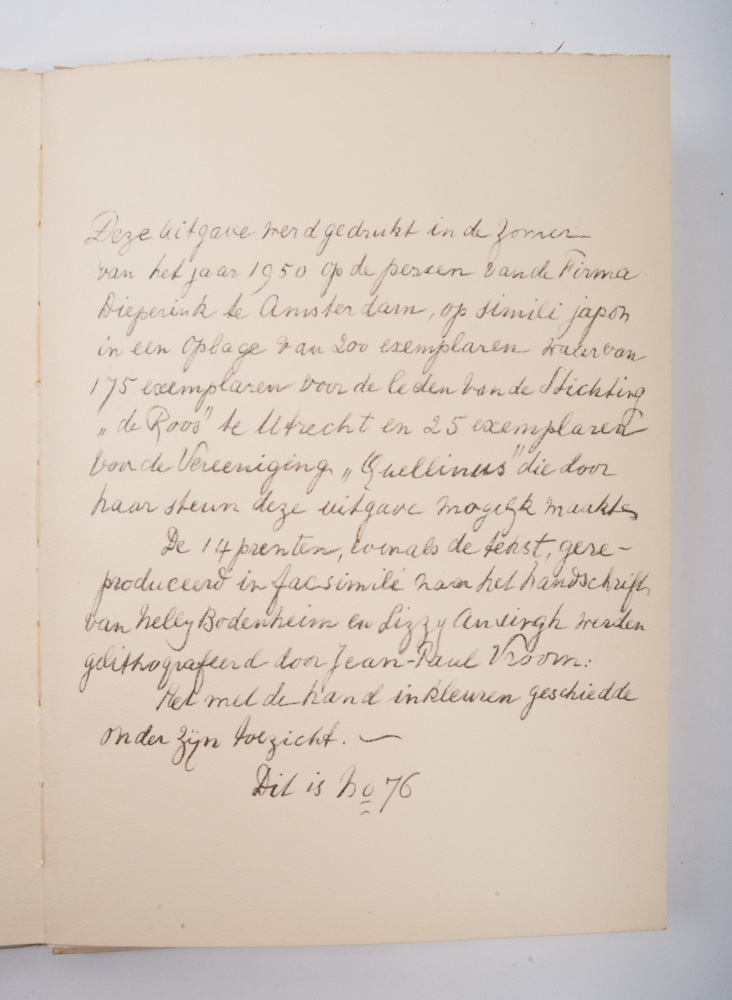 Deze uitgave werd gedrukt in de zomer
van het jaar 1950 op de persen van de Firma
Dieperink te Amsterdam, op simili japon
in een oplage van 200 exemplaren waarvan
175 exemplaren voor de leden van de Stichting
„de Roos” te Utrecht en 25 exemplaren
voor de Vereeniging „Quellinus” die door
haar steun deze uitgave mogelijk maakte
De 14 prenten, evenals de tekst, gere-
produceerd in facsimilé naar het handschrift
van Nelly Bodenheim en Lizzy Ansingh werden
gelithografeerd door Jean-Paul Vroom:
Het met de hand inkleuren geschiedde
onder zijn toezicht. —
Dit is No 76